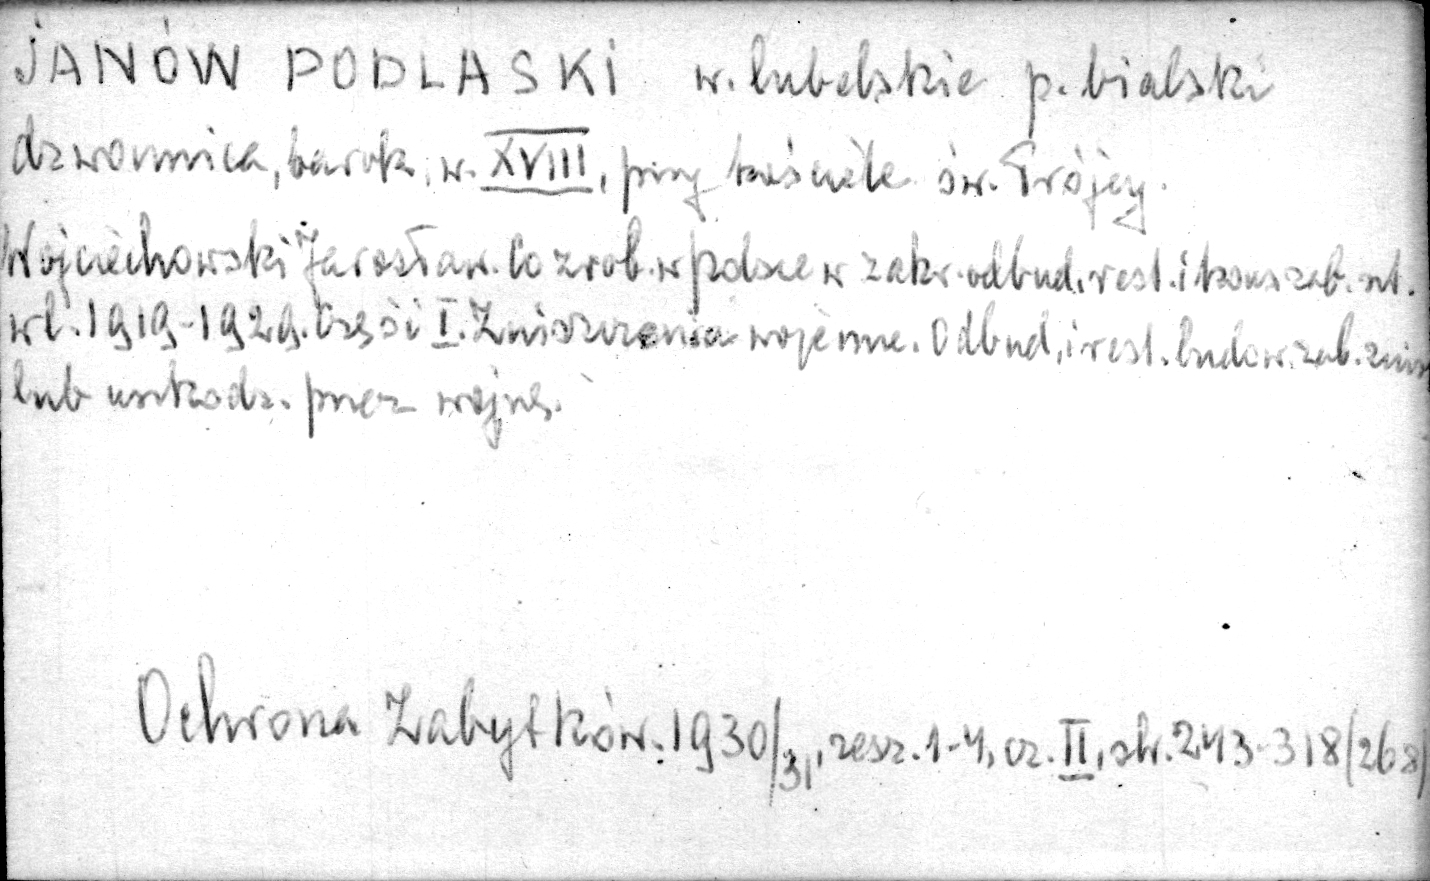 JANÓW PODLASKI w. lubelskie p. bialski
dzwonnica, barok, w. XVIII, przy kościele św. Trójcy.
Wojciechowski Jarosław. Co zrob. w Polsce w zakr. odbud. rest. i kons. zab. szt.
w l. 1919-1929. Część I. Zniszczenia wojenne. Odbud. i rest. budow. zab. znisz
lub uszkodz. przez wojnę.
Ochrona Zabytków. 1930/31, zesz. 1-4, cz. II, str. 243-318 (268)